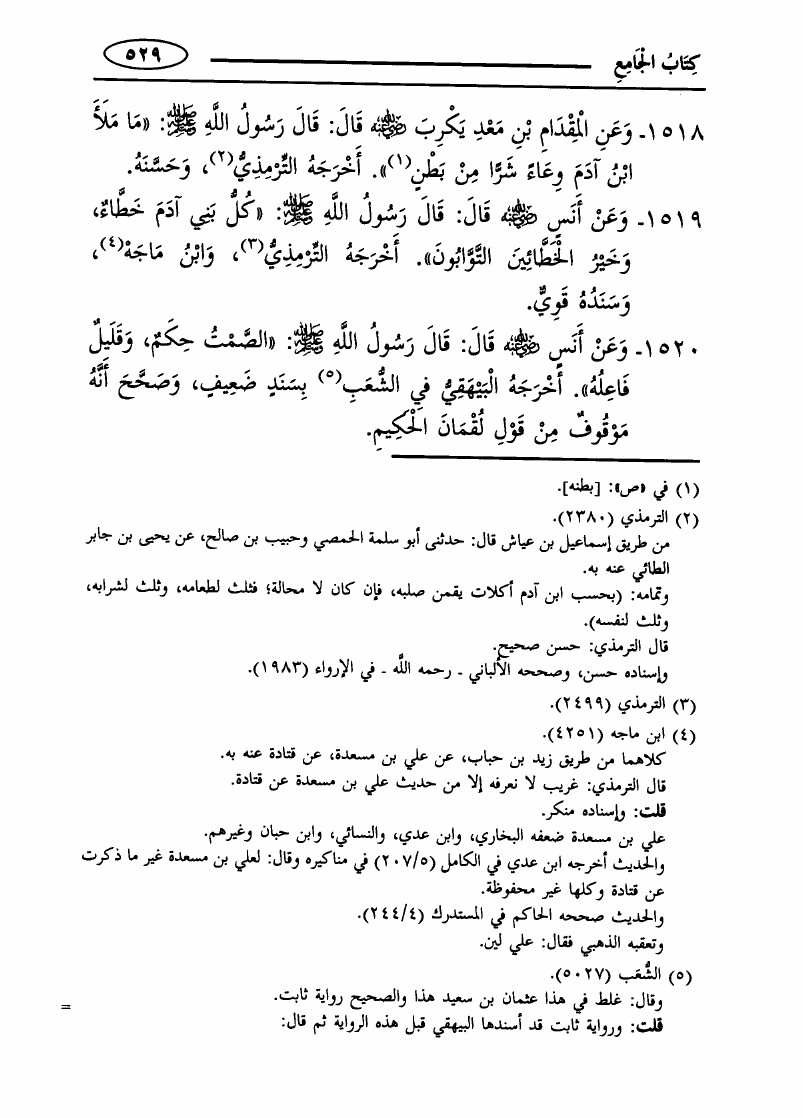 كِتَابُ الْجَامِعِ ٥٢٩
١٥١٨ـ وَعَنِ الْمِقْدَامِ بْنِ مَعْدِ يَكْرِبَ رضي الله عنه قَالَ: قَالَ رَسُولُ اللَّهِ ﷺ: «مَا مَلَأَ
ابْنُ آدَمَ وِعَاءً شَرًّا مِنْ بَطْنٍ(١)». أَخْرَجَهُ التِّرْمِذِيُّ(٢)، وَحَسَّنَهُ.
١٥١٩ـ وَعَنْ أَنَسٍ رضي الله عنه قَالَ: قَالَ رَسُولُ اللَّهِ ﷺ: «كُلُّ بَنِي آدَمَ خَطَّاءٌ،
وَخَيْرُ الْخَطَّائِينَ التَّوَّابُونَ». أَخْرَجَهُ التِّرْمِذِيُّ(٣)، وَابْنُ مَاجَهْ(٤)،
وَسَنَدُهُ قَوِيٌّ.
١٥٢٠ـ وَعَنْ أَنَسٍ رضي الله عنه قَالَ: قَالَ رَسُولُ اللَّهِ ﷺ: «الصَّمْتُ حِكَمٌ، وَقَلِيلٌ
فَاعِلُهُ». أَخْرَجَهُ الْبَيْهَقِيُّ فِي الشُّعَبِ(٥) بِسَنَدٍ ضَعِيفٍ، وَصَحَّحَ أَنَّهُ
مَوْقُوفٌ مِنْ قَوْلِ لُقْمَانَ الْحَكِيمِ.
(١) في «ص»: [بطنه].
(٢) الترمذي (٢٣٨٠).
من طريق إسماعيل بن عياش قال: حدثنى أبو سلمة الحمصي وحبيب بن صالح، عن يحيى بن جابر
الطائي عنه به.
وتمامه: (بحسب ابن آدم أكلات يقمن صلبه، فإن كان لا محالة؛ فثلث لطعامه، وثلث لشرابه،
وثلث لنفسه).
قال الترمذي: حسن صحيح.
وإسناده حسن، وصححه الألباني ـ رحمه اللَّه ـ في الإرواء (١٩٨٣).
(٣) الترمذي (٢٤٩٩).
(٤) ابن ماجه (٤٢٥١).
كلاهما من طريق زيد بن حباب، عن علي بن مسعدة، عن قتادة عنه به.
قال الترمذي: غريب لا نعرفه إلا من حديث علي بن مسعدة عن قتادة.
قلت: وإسناده منكر.
علي بن مسعدة ضعفه البخاري، وابن عدي، والنسائي، وابن حبان وغيرهم.
والحديث أخرجه ابن عدي في الكامل (٢٠٧/٥) في مناكيره وقال: لعلي بن مسعدة غير ما ذكرت
عن قتادة وكلها غير محفوظة.
والحديث صححه الحاكم في المستدرك (٢٤٤/٤).
وتعقبه الذهبي فقال: علي لين.
(٥) الشُّعَب (٥٠٢٧).
وقال: غلط في هذا عثمان بن سعيد هذا والصحيح رواية ثابت.
قلت: ورواية ثابت قد أسندها البيهقي قبل هذه الرواية ثم قال:
=